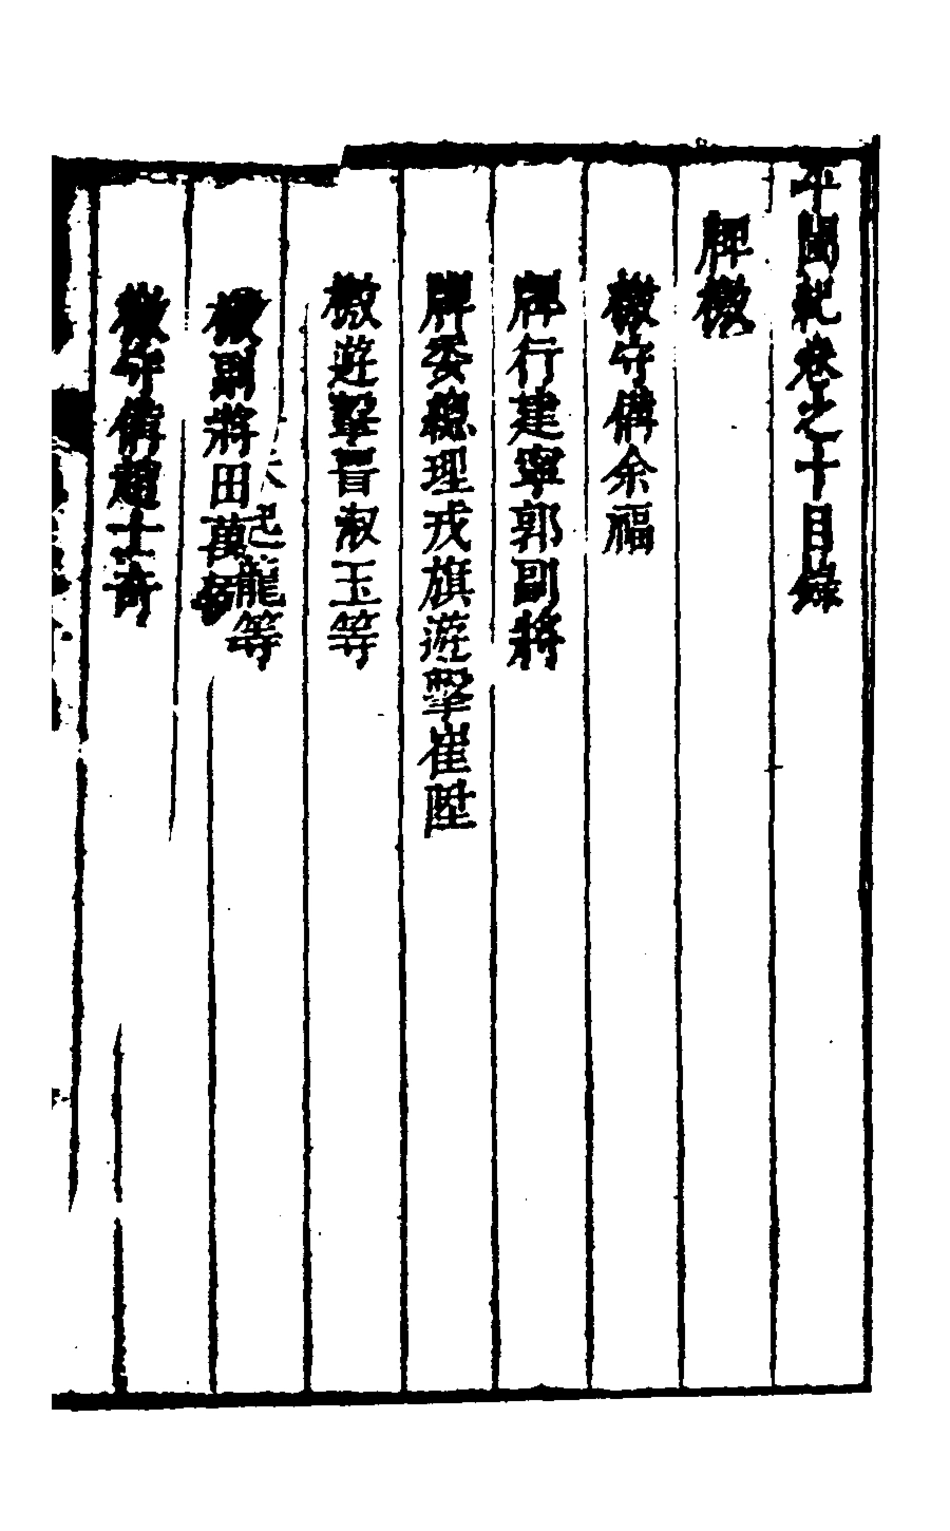 平閩紀卷之十目錄
牌檄
檄守備余福
牌行建寧郭副將
牌委總理戎旗遊擊崔陞
檄遊擊晋淑玉等
起龍等
檄副將田萬
檄守備趙士奇